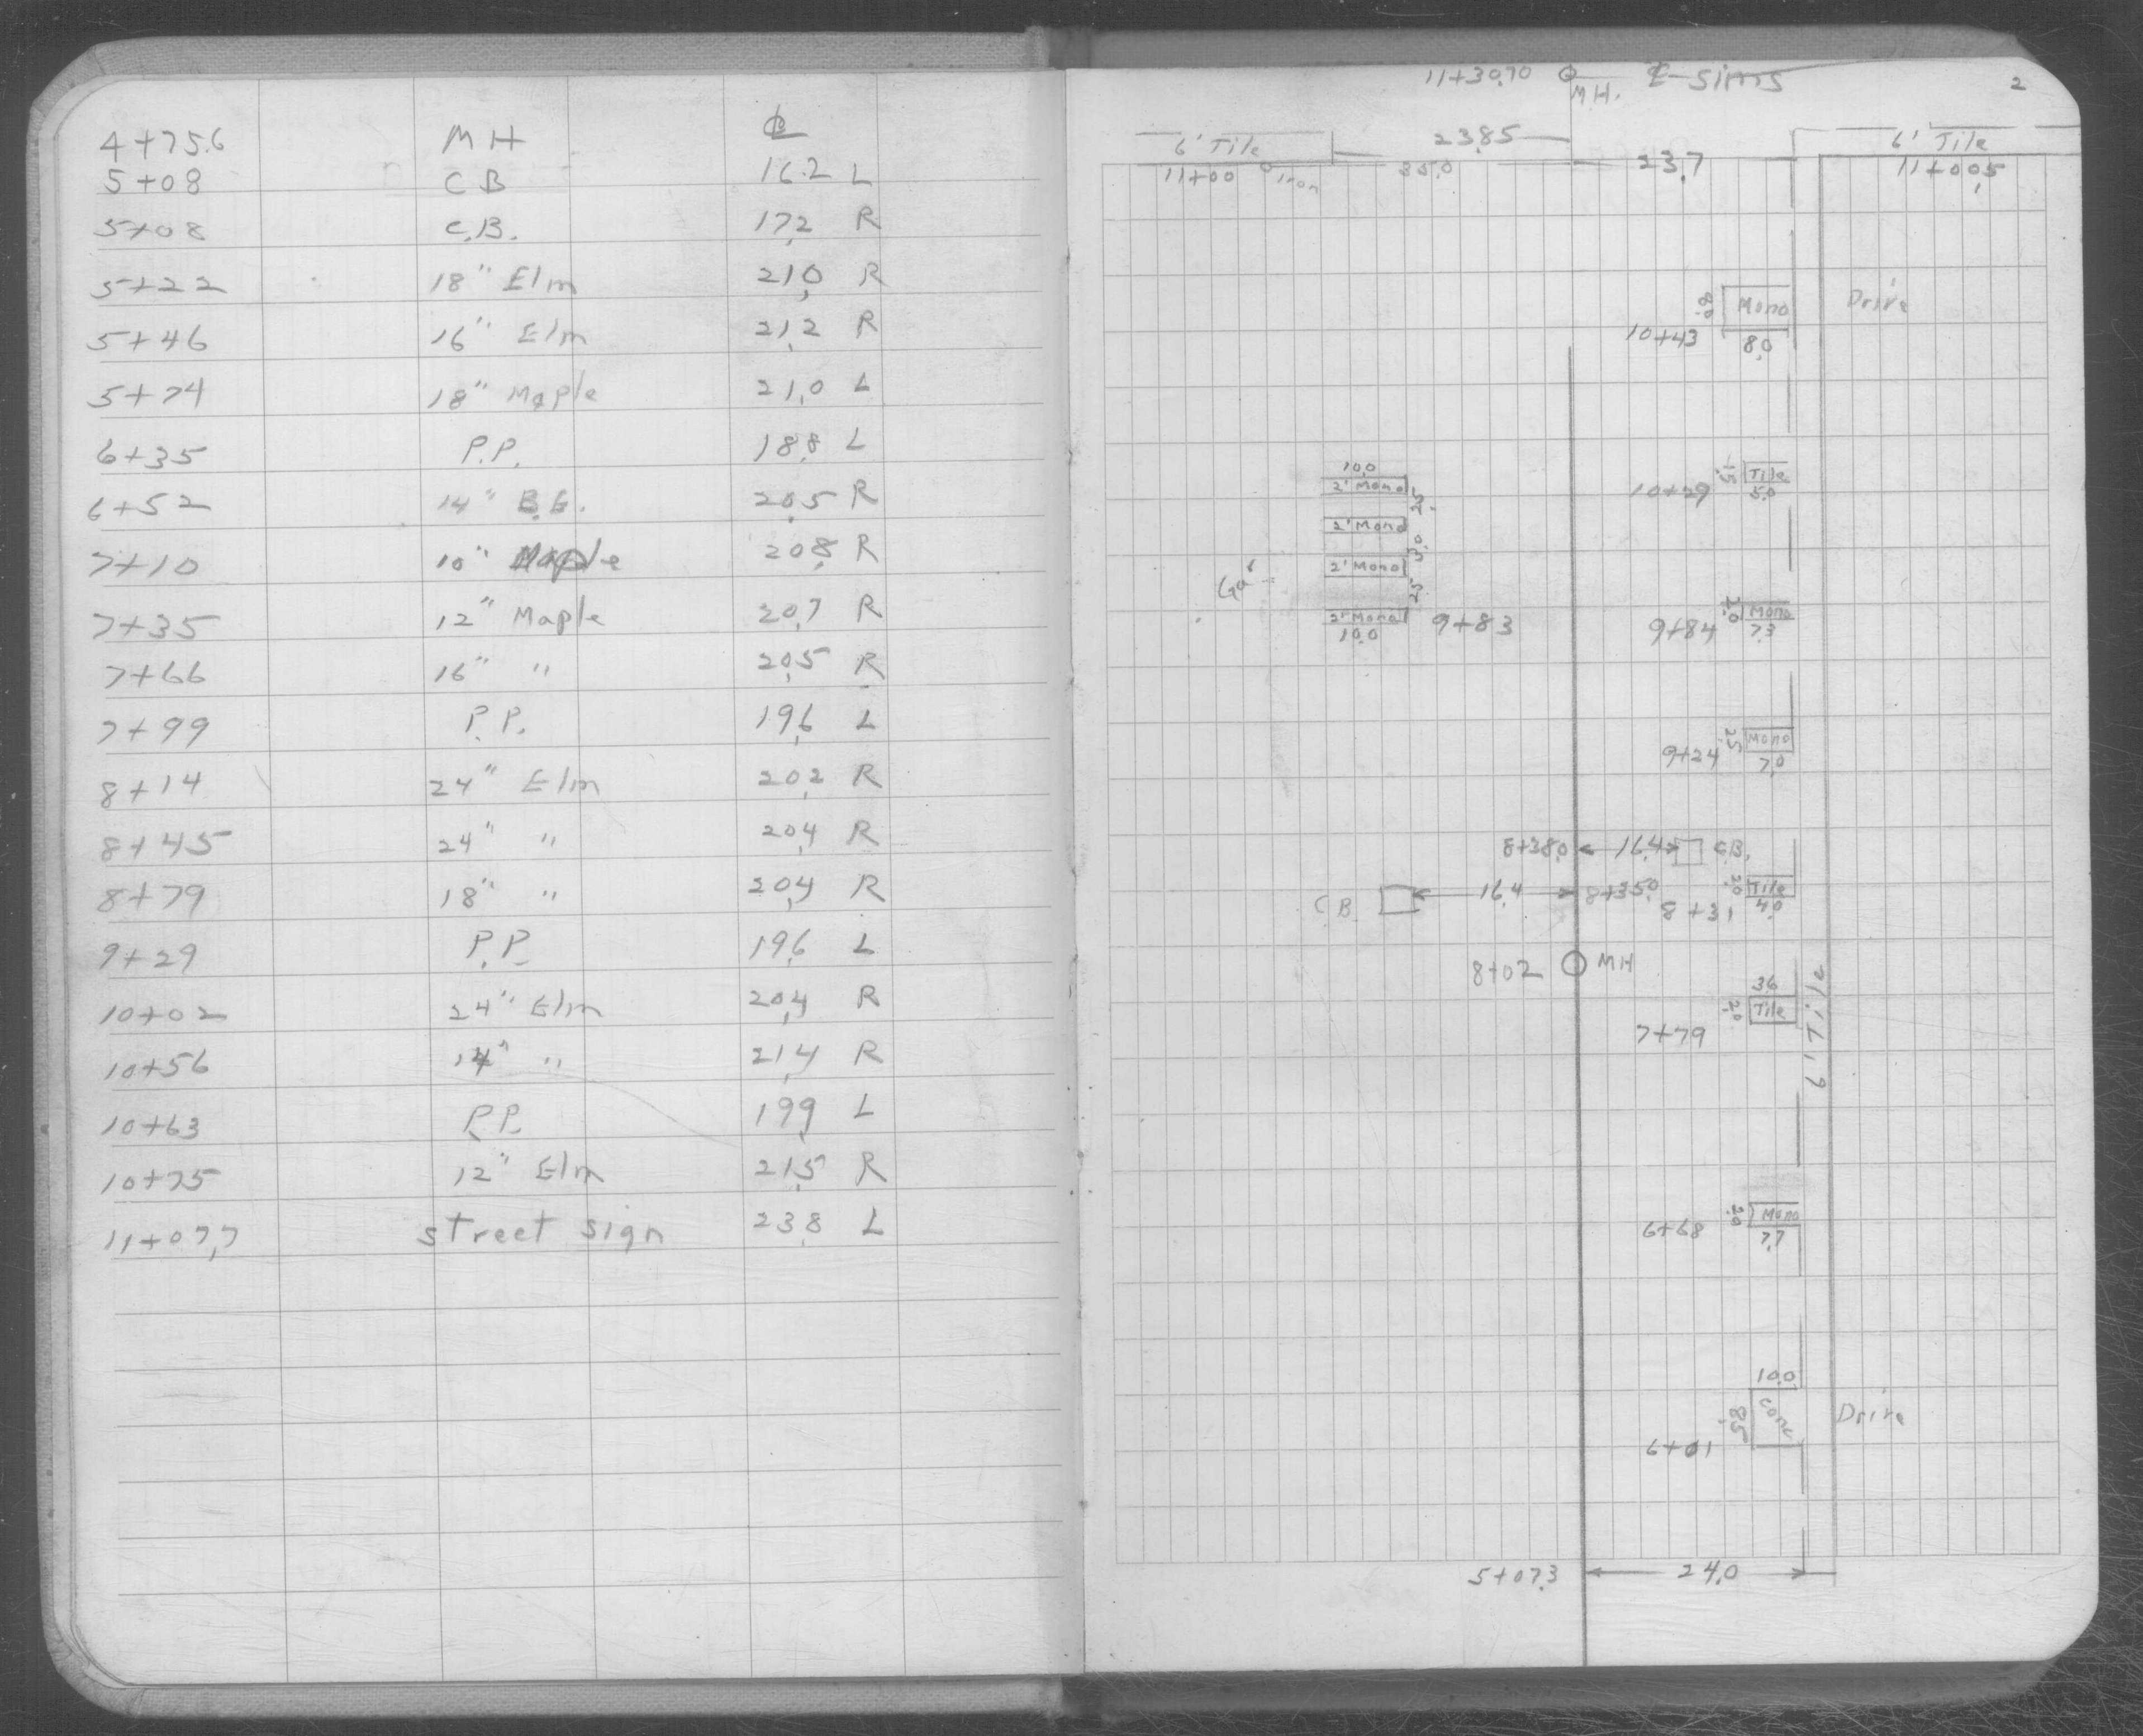 4+75.6 MH ℄
5+08 CB 16.2 L
5+08 C.B. 17.2 R
5+22 18" Elm 21.0 R
5+46 16" Elm 21.2 R
5+74 18" Maple 21.0 L
6+35 P.P. 18.8 L
6+52 14" B.E. 20.5 R
7+10 10" Maple 20.8 R
7+35 12" Maple 20.7 R
7+66 16" " 20.5 R
7+99 P.P. 19.6 L
8+14 24" Elm 20.2 R
8+45 24" " 20.4 R
8+79 18" " 20.4 R
9+29 P.P. 19.6 L
10+02 24" Elm 20.4 R
10+56 14" " 21.4 R
10+63 P.P. 19.9 L
10+75 12" Elm 21.5 R
11+07.7 street sign 23.8 L
11+30.70 MH. ℄ Sims 2
6' Tile 23.85 6' Tile
11+00 Iron 35.0 23.7 11+00.5
8.0 Mono Drive
10+43 8.0
10.0
2' Mono 2.5
10+29 1.5 Tile
5.0
2' Mono
3.0
2' Mono
2.5
2' Mono 9+83
10.0
9+84 2.0 Mono
7.3
9+24 2.5 Mono
7.0
8+38.0 16.4 C.B.
CB 16.4 8+35.0
8+31 2.0 Tile
4.0
8+02 MH
36
7+79 2.0 Tile
6' Tile
6+68 2.0 Mono
7.7
10.0
8.5 Conc Drive
6+01
5+07.3 24.0